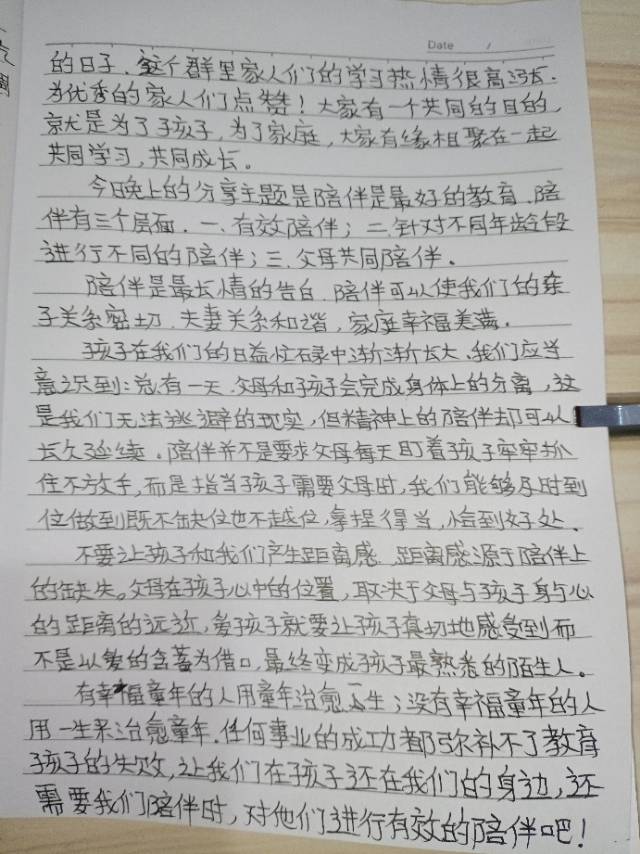 Date /
的日子.这个群里家人们的学习热情很高涨.
为优秀的家人们点赞！大家有一个共同的目的，
就是为了孩子，为了家庭，大家有缘相聚在一起
共同学习，共同成长。
今日晚上的分享主题是陪伴是最好的教育.陪
伴有三个层面.一.有效陪伴；二.针对不同年龄段
进行不同的陪伴；三.父母共同陪伴.
陪伴是最长情的告白.陪伴可以使我们的亲
子关系密切.夫妻关系和谐，家庭幸福美满.
孩子在我们的日益忙碌中渐渐长大.我们应当
意识到:总有一天.父母和孩子会完成身体上的分离，这
是我们无法逃避的现实，但精神上的陪伴却可以
长久延续.陪伴并不是要求父母每天盯着孩子牢牢抓
住不放手，而是指当孩子需要父母时，我们能够及时到
位做到既不缺位也不越位，拿捏得当，恰到好处.
不要让孩子和我们产生距离感.距离感源于陪伴上
的缺失。父母在孩子心中的位置，取决于父母与孩子身与心
的距离的远近，爱孩子就要让孩子真切地感受到而
不是以爱的含蓄为借口，最终变成孩子最熟悉的陌生人。
有幸福童年的人用童年治愈一生；没有幸福童年的人
用一生来治愈童年.任何事业的成功都弥补不了教育
孩子的失败，让我们在孩子还在我们的身边，还
需要我们陪伴时，对他们进行有效的陪伴吧！